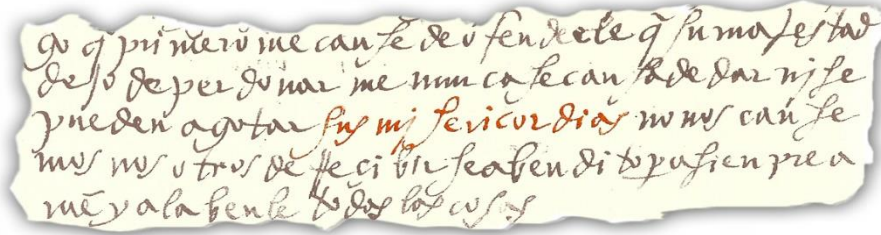 go q̄ primero me canse de ofenderle q̄ su majestad
dejo de perdonar me nunca se cansa de dar nj se
pueden agotar sus mjsericordias no nos canse
mos nosotros de rrecibir sea bendito pa sienpre a
mē y alabenle todas las cosas